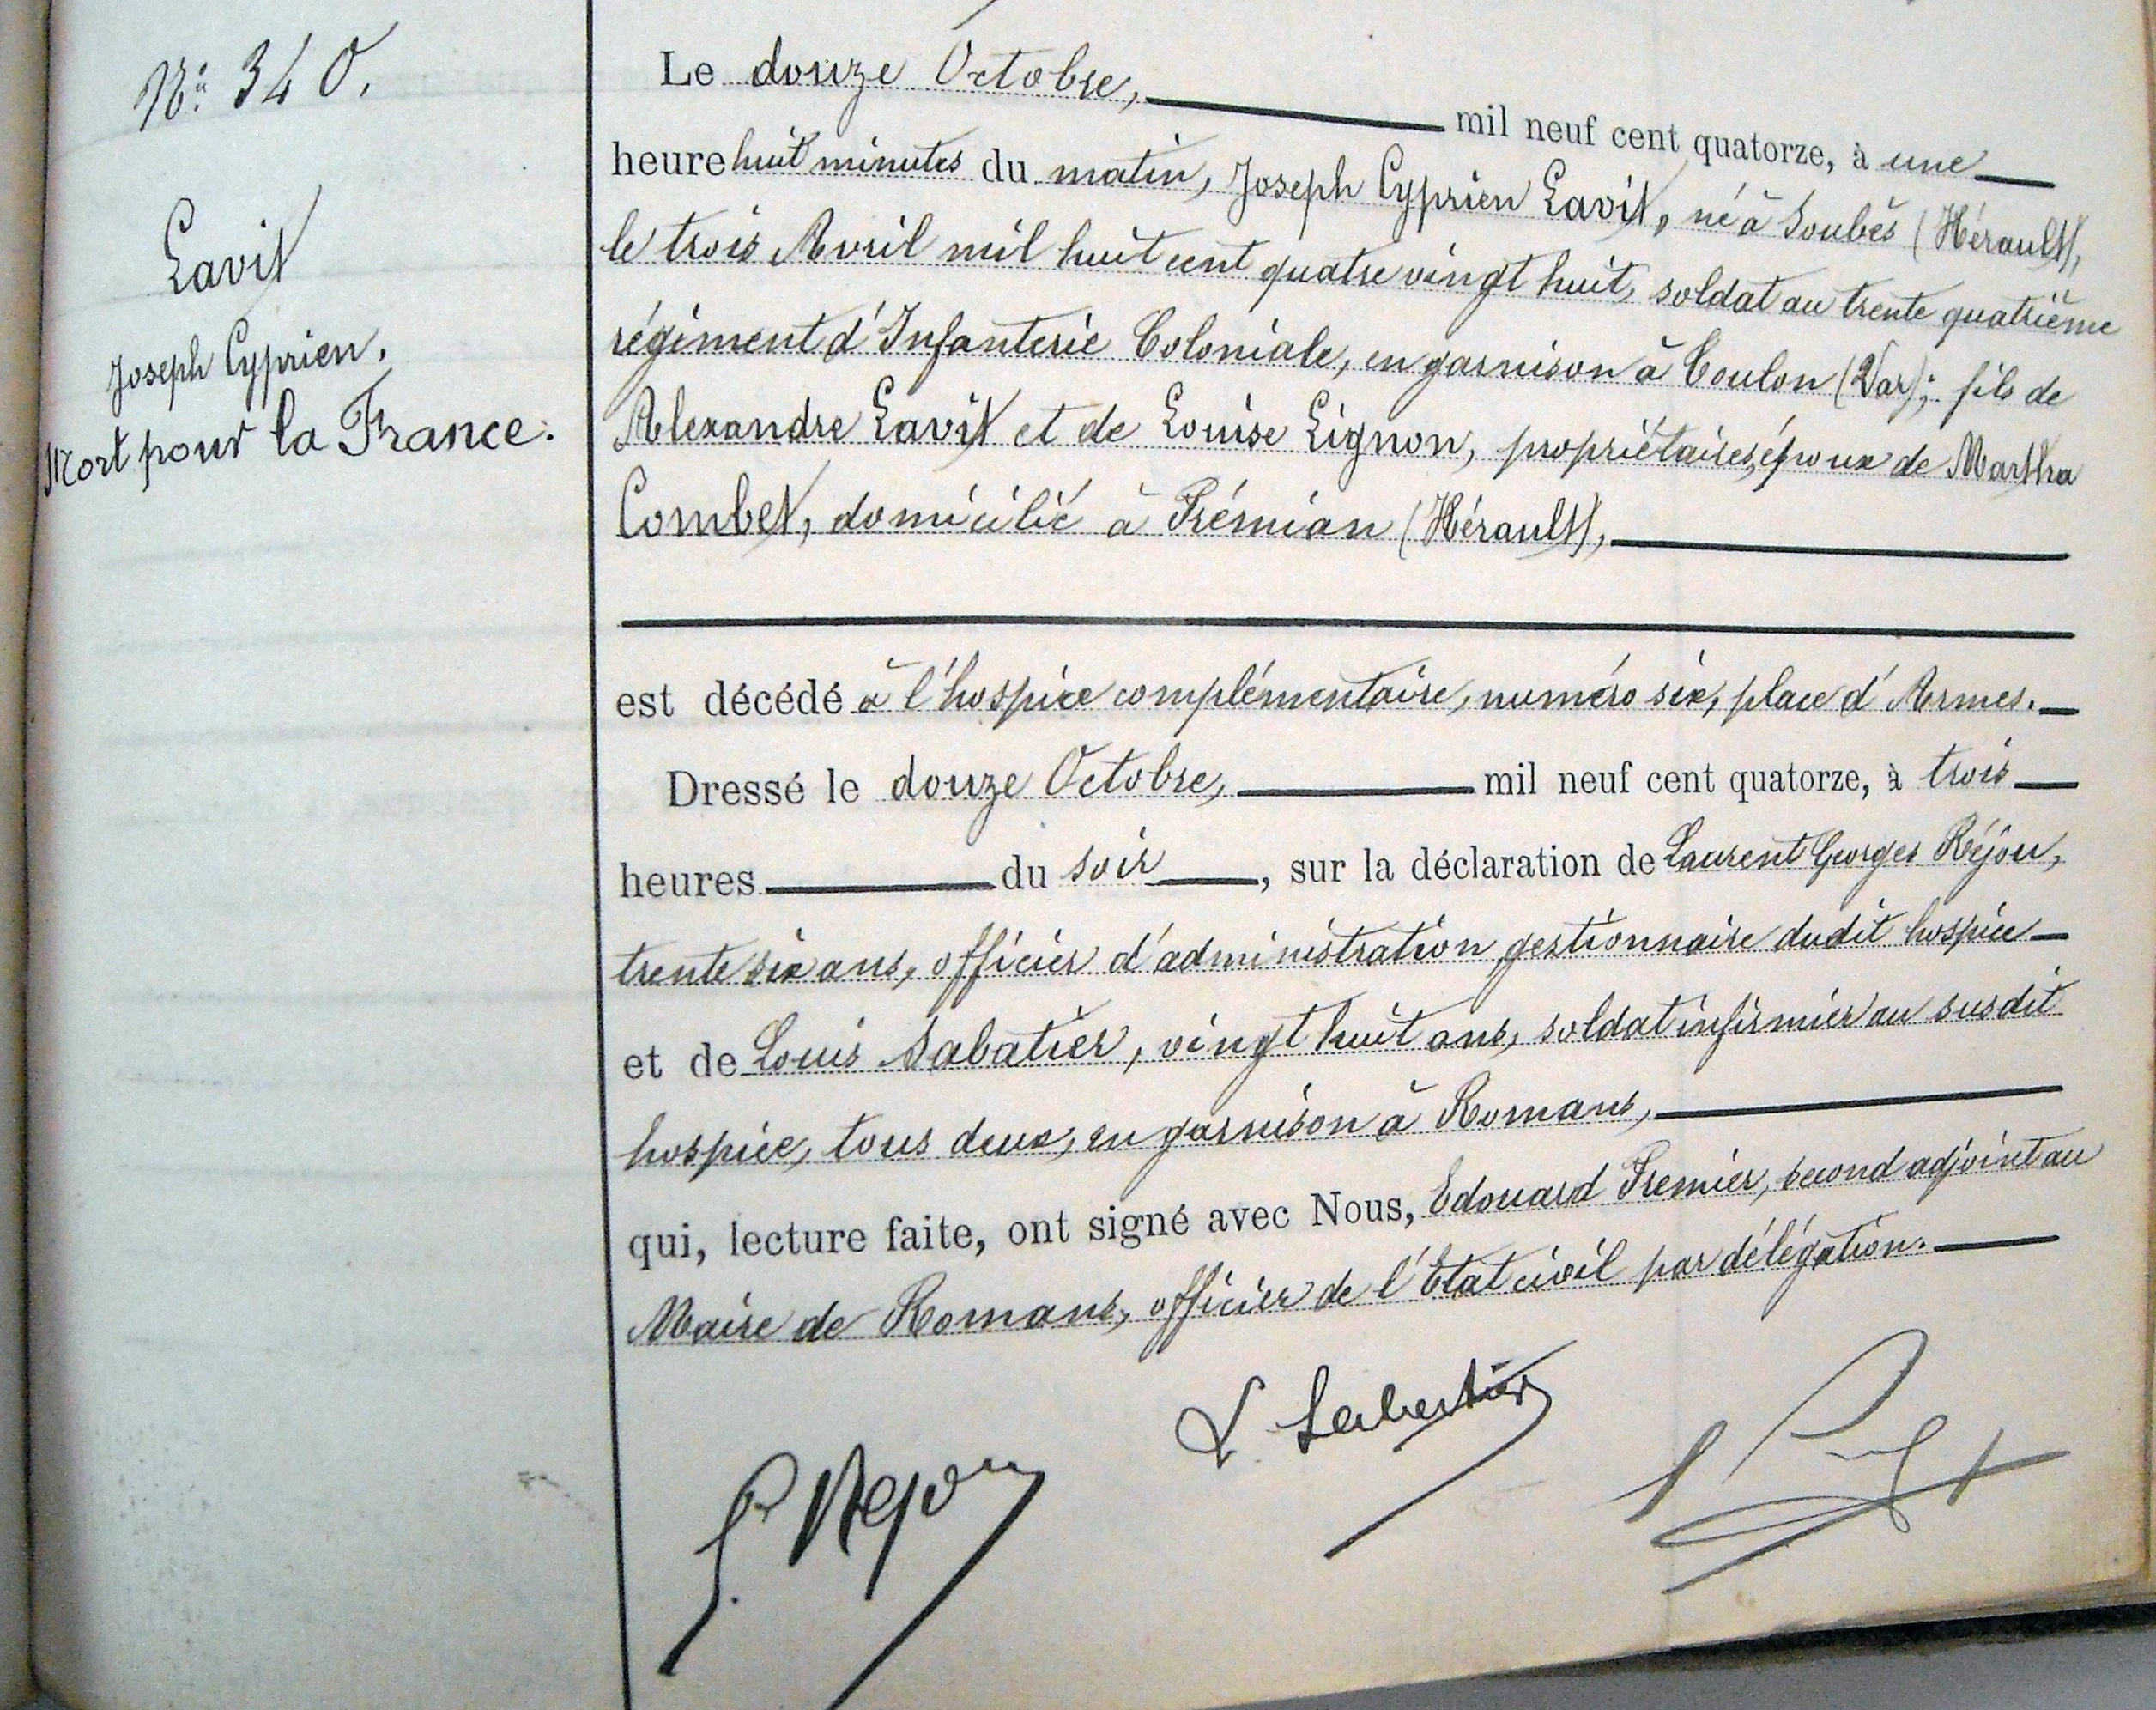 N° 340.
Lavit
Joseph Cyprien.
Mort pour la France.
Le douze Octobre, mil neuf cent quatorze, à une
heure huit minutes du matin, Joseph Cyprien Lavit, né à Soubès (Hérault),
le trois Avril mil huit cent quatre vingt huit, soldat au trente quatrième
régiment d'Infanterie Coloniale, en garnison à Toulon (Var); fils de
Alexandre Lavit et de Louise Lignon, propriétaires, époux de Martha
Combet, domicilié à Prémian (Hérault),
est décédé à l'hospice complémentaire, numéro six, place d'Armes.
Dressé le douze Octobre, mil neuf cent quatorze, à trois
heures du soir, sur la déclaration de Laurent Georges Réjou,
trente six ans, officier d'administration, gestionnaire dudit hospice
et de Louis Sabatier, vingt huit ans, soldat infirmier au susdit
hospice, tous deux, en garnison à Romans,
qui, lecture faite, ont signé avec Nous, Edouard Premier, second adjoint au
Maire de Romans, officier de l'Etat civil par délégation.
L Sabatier
G. Rejou